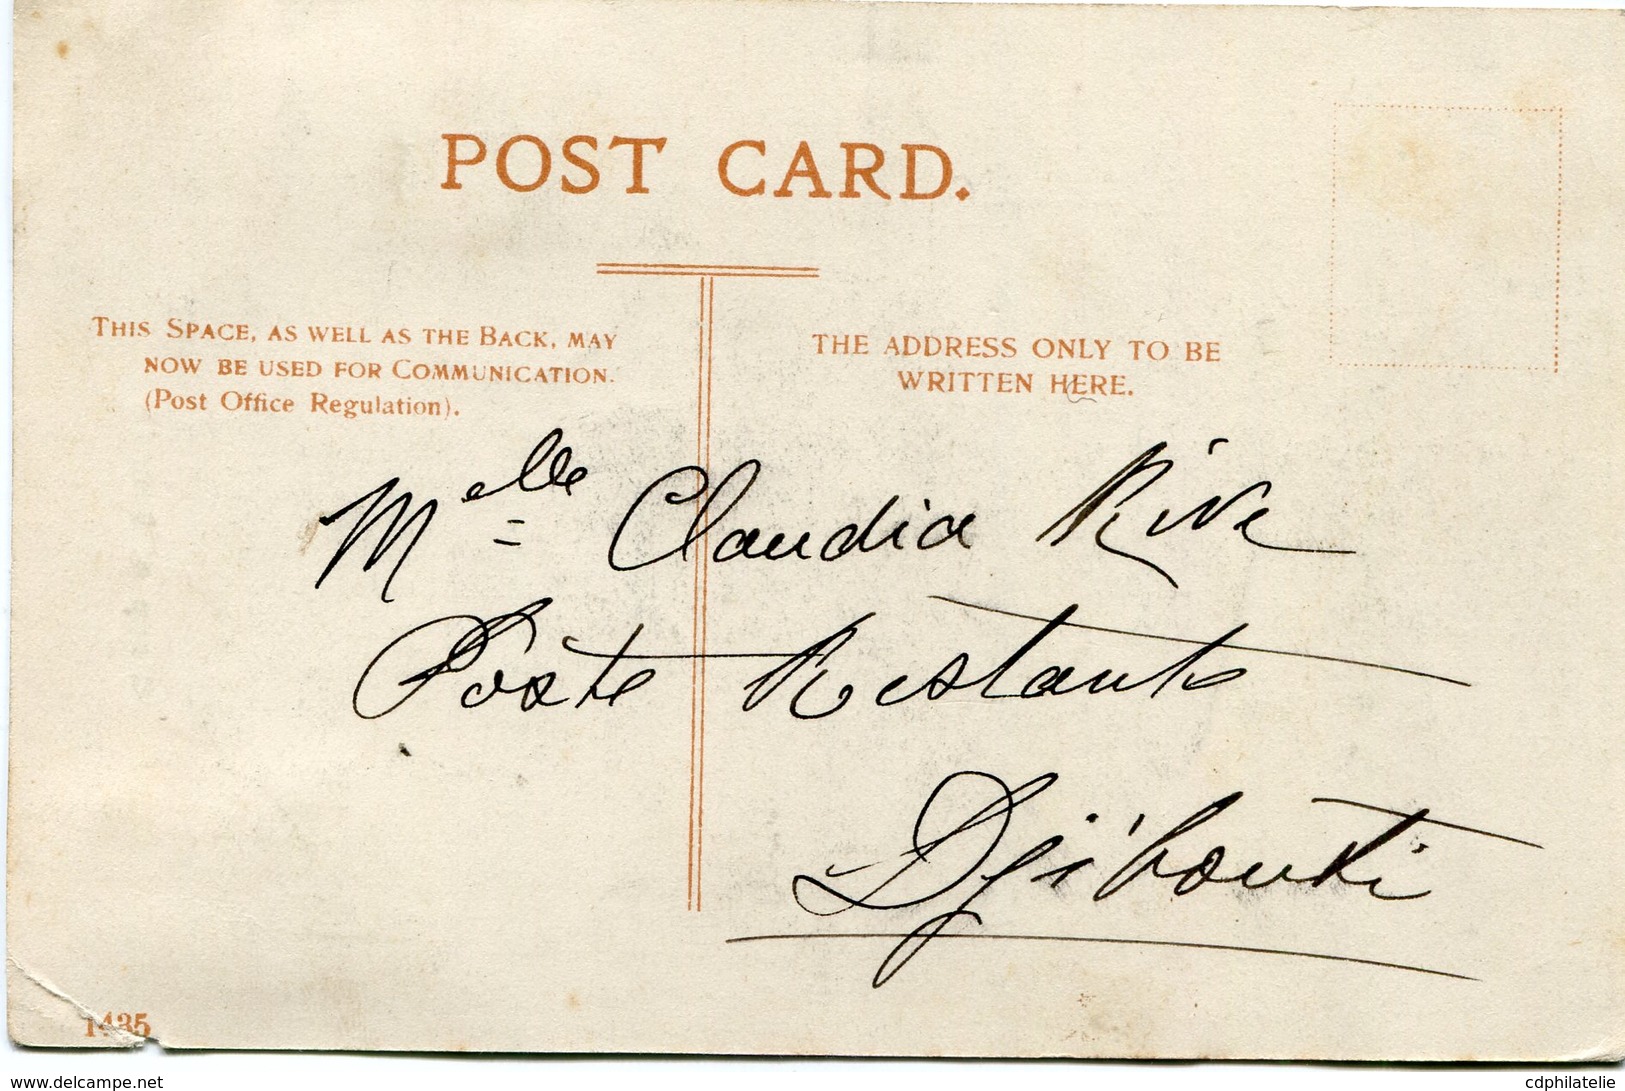 POST CARD.
THIS SPACE, AS WELL AS THE BACK, MAY
NOW BE USED FOR COMMUNICATION.
(Post Office Regulation).
THE ADDRESS ONLY TO BE
WRITTEN HERE.
Melle Claudia Rive
Poste Restante
Djibouti
1435
delcampe.net
cdphilatelie